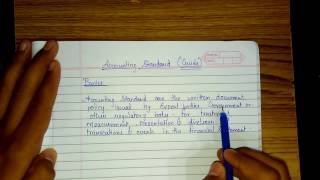 Accounting Standard (Guide)
Basics
Accounting Standard are the written document
policy issued by Expert bodies Government or
other regulatory body for treatment
measurement, presentation &
transactions & events in the financial statement